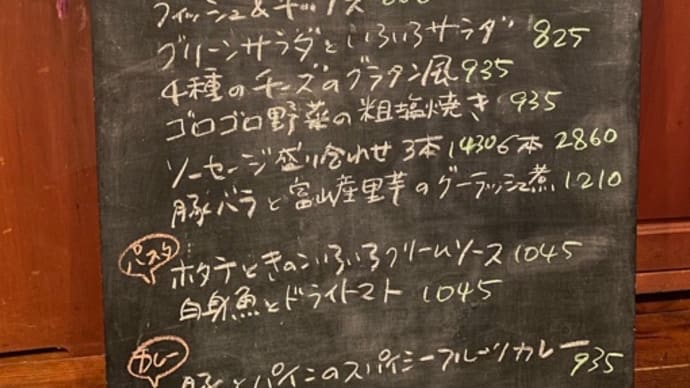 フィッシュ&チップス
グリーンサラダといろいろサラダ 825
4種のチーズのグラタン風 935
ゴロゴロ野菜の粗塩焼き 935
ソーセージ盛り合わせ 3本1430 6本2860
豚バラと富山産里芋のグーラッシュ煮 1210
パスタ
ホタテときのこいろいろクリームソース 1045
白身魚とドライトマト 1045
カレー
豚とパインのスパイシーフルーツカレー 935